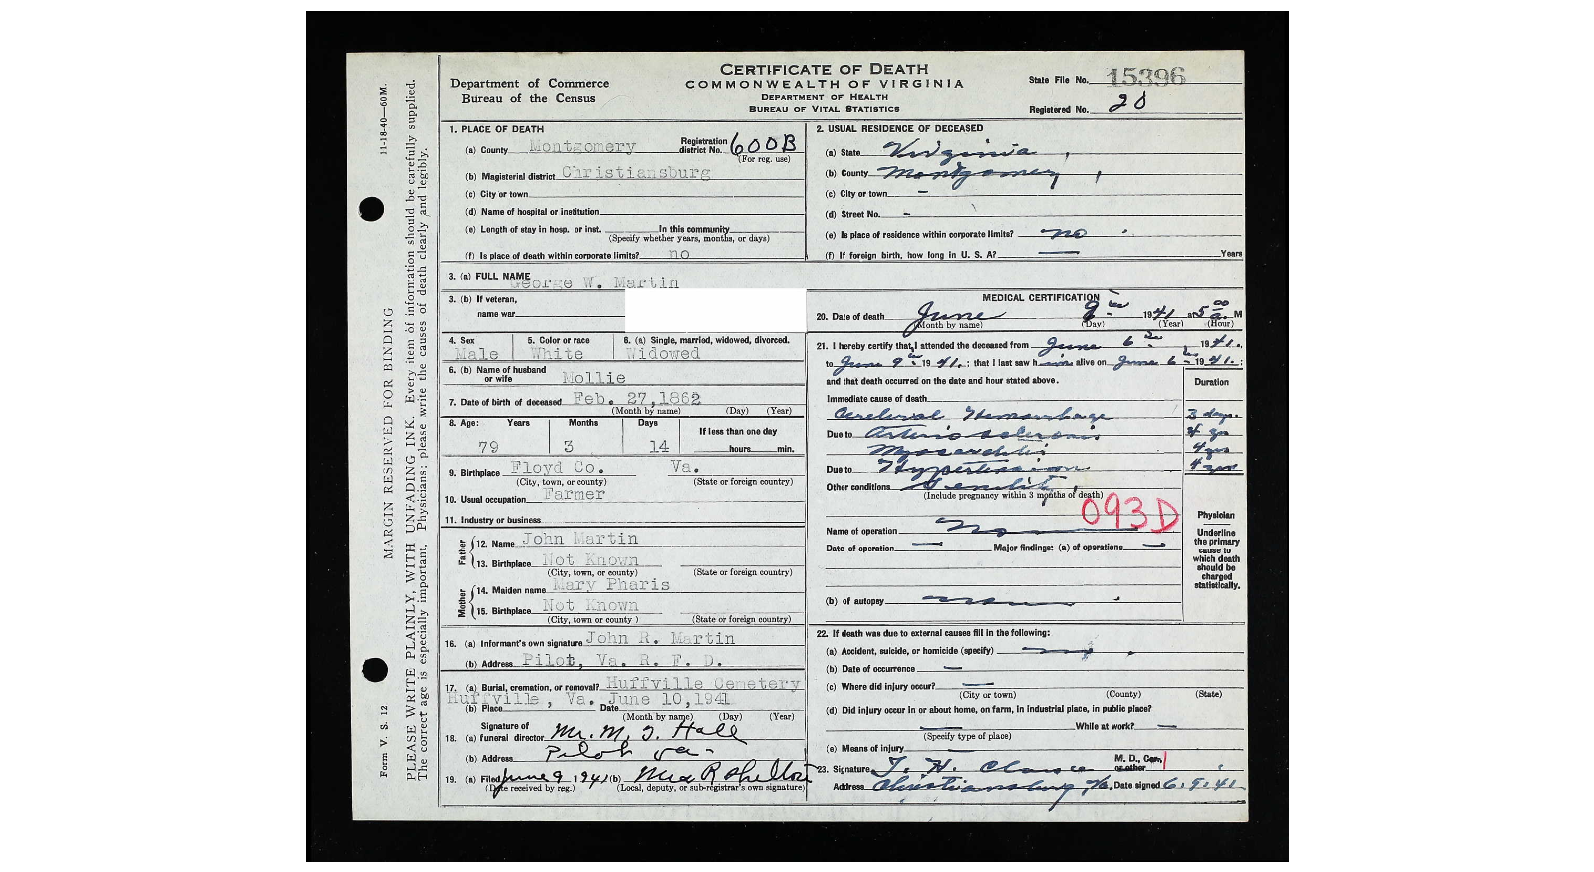 CERTIFICATE OF DEATH
COMMONWEALTH OF VIRGINIA
DEPARTMENT OF HEALTH
BUREAU OF VITAL STATISTICS
Department of Commerce
Bureau of the Census
State File No. 15396
Registered No. 20
11-18-40—60M.
MARGIN RESERVED FOR BINDING
PLEASE WRITE PLAINLY, WITH UNFADING INK. Every item of information should be carefully supplied.
The correct age is especially important. Physicians: please write the causes of death clearly and legibly.
Form V. S. 12
1. PLACE OF DEATH
(a) County Montgomery Registration district No. 600B
(For reg. use)
(b) Magisterial district Christiansburg
(c) City or town
(d) Name of hospital or institution
(e) Length of stay in hosp. or inst. In this community
(Specify whether years, months, or days)
(f) Is place of death within corporate limits? no
2. USUAL RESIDENCE OF DECEASED
(a) State Virginia
(b) County Montgomery
(c) City or town —
(d) Street No. —
(e) Is place of residence within corporate limits? no
(f) If foreign birth, how long in U. S. A? — Years
3. (a) FULL NAME George W. Martin
3. (b) If veteran,
name war
4. Sex Male
5. Color or race White
6. (a) Single, married, widowed, divorced. Widowed
6. (b) Name of husband or wife Mollie
7. Date of birth of deceased Feb. 27,1862
(Month by name) (Day) (Year)
8. Age: Years Months Days If less than one day
79 3 14 hours min.
9. Birthplace Floyd Co. Va.
(City, town, or county) (State or foreign country)
10. Usual occupation Farmer
11. Industry or business
Father
12. Name John Martin
13. Birthplace Not Known
(City, town, or county) (State or foreign country)
Mother
14. Maiden name Mary Pharis
15. Birthplace Not Known
(City, town or county) (State or foreign country)
16. (a) Informant's own signature John R. Martin
(b) Address Pilot, Va. R. F. D.
17. (a) Burial, cremation, or removal? Huffville Cemetery
Huffville, Va. June 10,1941
(b) Place Date
(Month by name) (Day) (Year)
18. (a) Signature of funeral director Mr. M. J. Hall
(b) Address Pilot Va-
19. (a) Filed June 9 1941 (b) Mrs R Shelton
(Date received by reg.) (Local, deputy, or sub-registrar's own signature)
MEDICAL CERTIFICATION
20. Date of death June 9 1941 at 5 00 a. M
(Month by name) (Day) (Year) (Hour)
21. I hereby certify that I attended the deceased from June 6 1941.
to June 9 1941.; that I last saw him alive on June 6 1941.;
and that death occurred on the date and hour stated above.
Duration
Immediate cause of death
Cerebral Hemorrhage 3 days.
Due to Arterio sclerosis 4 yrs
Myocarditis 4 yrs
Due to Hypertension 4 yrs
Other conditions Senility
(Include pregnancy within 3 months of death)
093D
Name of operation
Date of operation — Major findings: (a) of operations —
(b) of autopsy
Physician
Underline the primary cause to which death should be charged statistically.
22. If death was due to external causes fill in the following:
(a) Accident, suicide, or homicide (specify)
(b) Date of occurrence —
(c) Where did injury occur? —
(City or town) (County) (State)
(d) Did injury occur in or about home, on farm, in industrial place, in public place?
— While at work? —
(Specify type of place)
(e) Means of injury —
23. Signature M. D., Cor., or other
Address Christiansburg, Va. Date signed 6.9.41